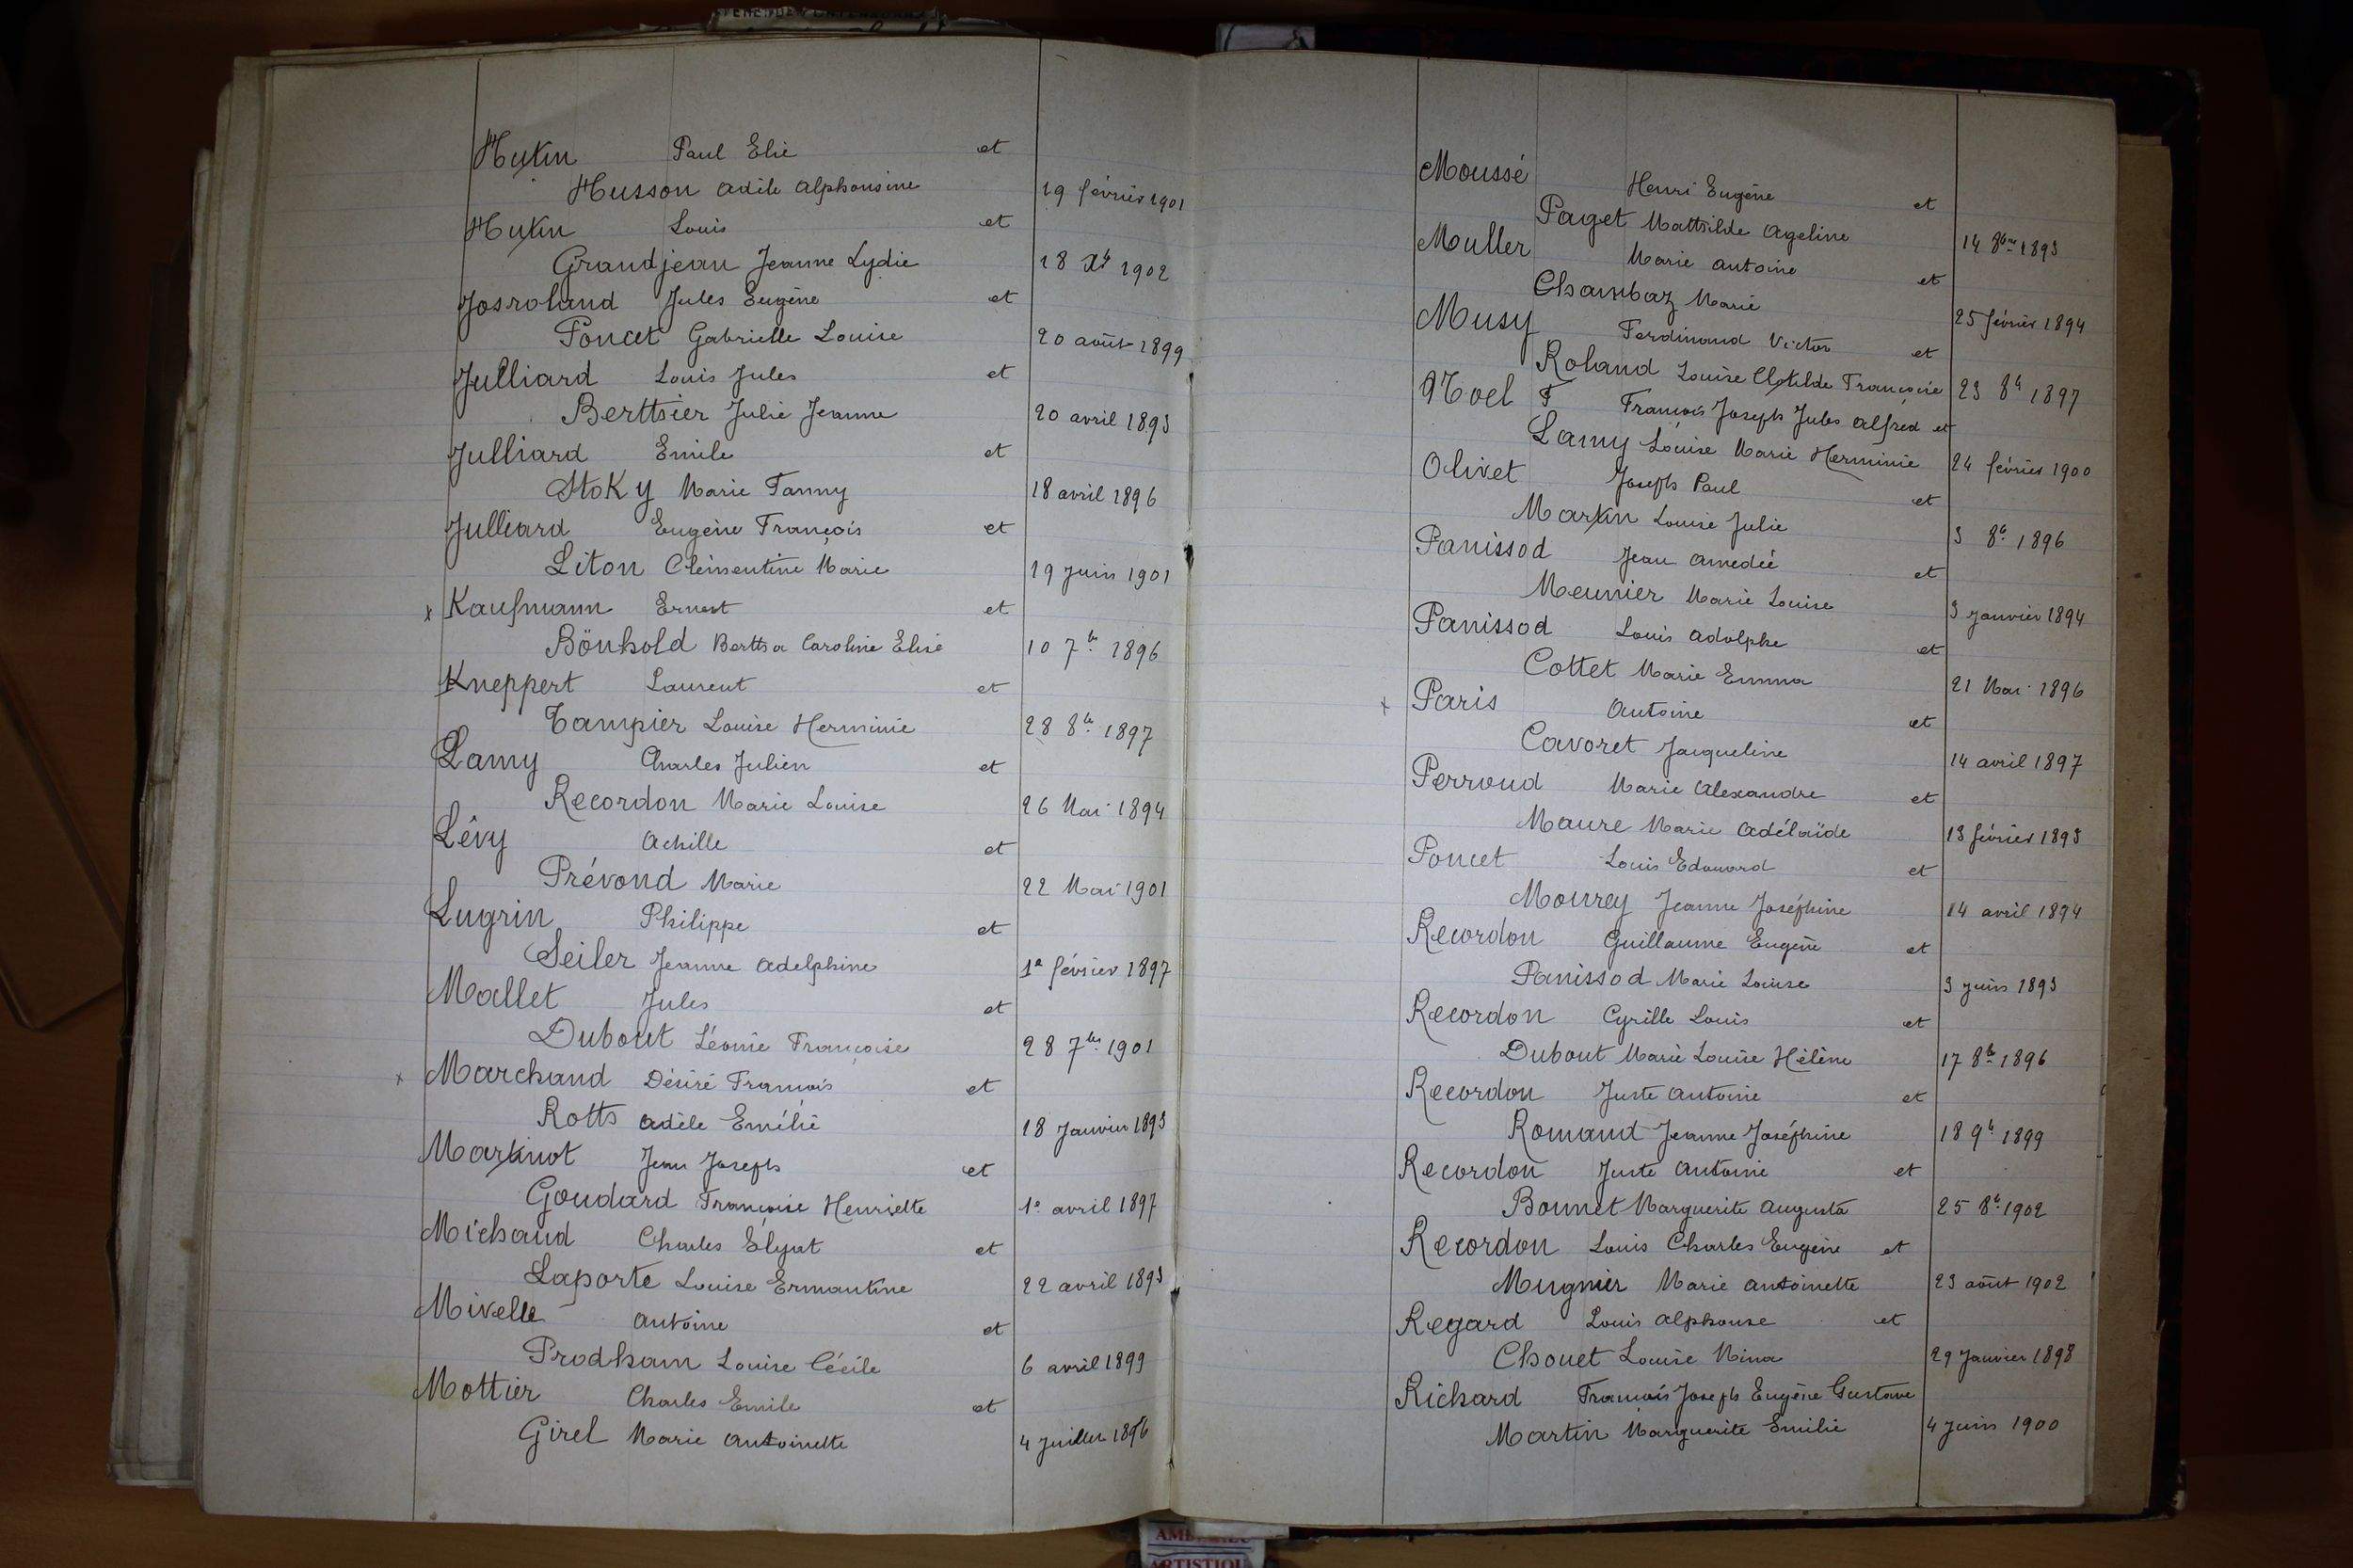 Hutin Paul Elie et
Husson Adèle Alphonsine 19 février 1901
Hutin Louis et
Grandjean Jeanne Lydie 18 Xb 1902
Josroland Jules Eugène et
Poncet Gabrielle Louise 20 août 1899
Julliard Louis Jules et
Berthier Julie Jeanne 20 avril 1893
Julliard Emile et
Stoky Marie Fanny 18 avril 1896
Julliard Eugène François et
Liton Clémentine Marie 19 Juin 1901
x Kaufmann Ernest et
Bönhold Bertha Caroline Elise 10 7b 1896
Kneppert Laurent et
Tampier Louise Herminie 28 8b 1897
Lamy Charles Julien et
Recordon Marie Louise 26 Mai 1894
Lévy Achille et
Prévond Marie 22 Mai 1901
Lugrin Philippe et
Seiler Jeanne Adelphine 1e février 1897
Mallet Jules et
Dubout Léonie Françoise 28 7bre 1901
x Marchand Désiré François et
Roth Adèle Emélie 18 Janvier 1893
Martinot Jean Joseph et
Goudard Françoise Henriette 1e avril 1897
Michaud Charles Elysat et
Laporte Louise Ermantine 22 avril 1893
Mivelle Antoine et
Prodham Louise Cécile 6 avril 1899
Mottier Charles Emile et
Girel Marie Antoinette 4 Juillet 1896
Moussé Henri Eugène et
Paget Mathilde Ageline 14 8bre 1893
Muller Marie Antoine et
Chambaz Marie 25 février 1894
Musy Ferdinand Victor et
Roland Louise Clotilde Françoise 23 8b 1897
Noel F François Joseph Jules Alfred et
Lamy Louise Marie Herminie 24 février 1900
Olivet Joseph Paul et
Martin Louise Julie 3 8b 1896
Panissod Jean Amedée et
Meunier Marie Louise 3 Janvier 1894
Panissod Louis Adolphe et
Cottet Marie Emma 21 Mai 1896
x Paris Antoine et
Cavoret Jacqueline 14 avril 1897
Perroud Marie Alexandre et
Maure Marie Adélaïde 13 février 1893
Poncet Louis Edouard et
Mourey Jeanne Joséphine 14 avril 1894
Recordon Guillaume Eugène et
Panissod Marie Louise 3 juin 1893
Recordon Cyrille Louis et
Dubout Marie Louise Hélène 17 8b 1896
Recordon Juste Antoine et
Romand Jeanne Joséphine 18 9b 1899
Recordon Juste Antoine et
Bonnet Marguerite Augusta 25 8b 1902
Recordon Louis Charles Eugène et
Mugnier Marie Antoinette 23 août 1902
Regard Louis Alphonse et
Chouet Louise Nina 29 Janvier 1898
Richard François Joseph Eugène Gustave
Martin Marguerite Emilie 4 Juin 1900